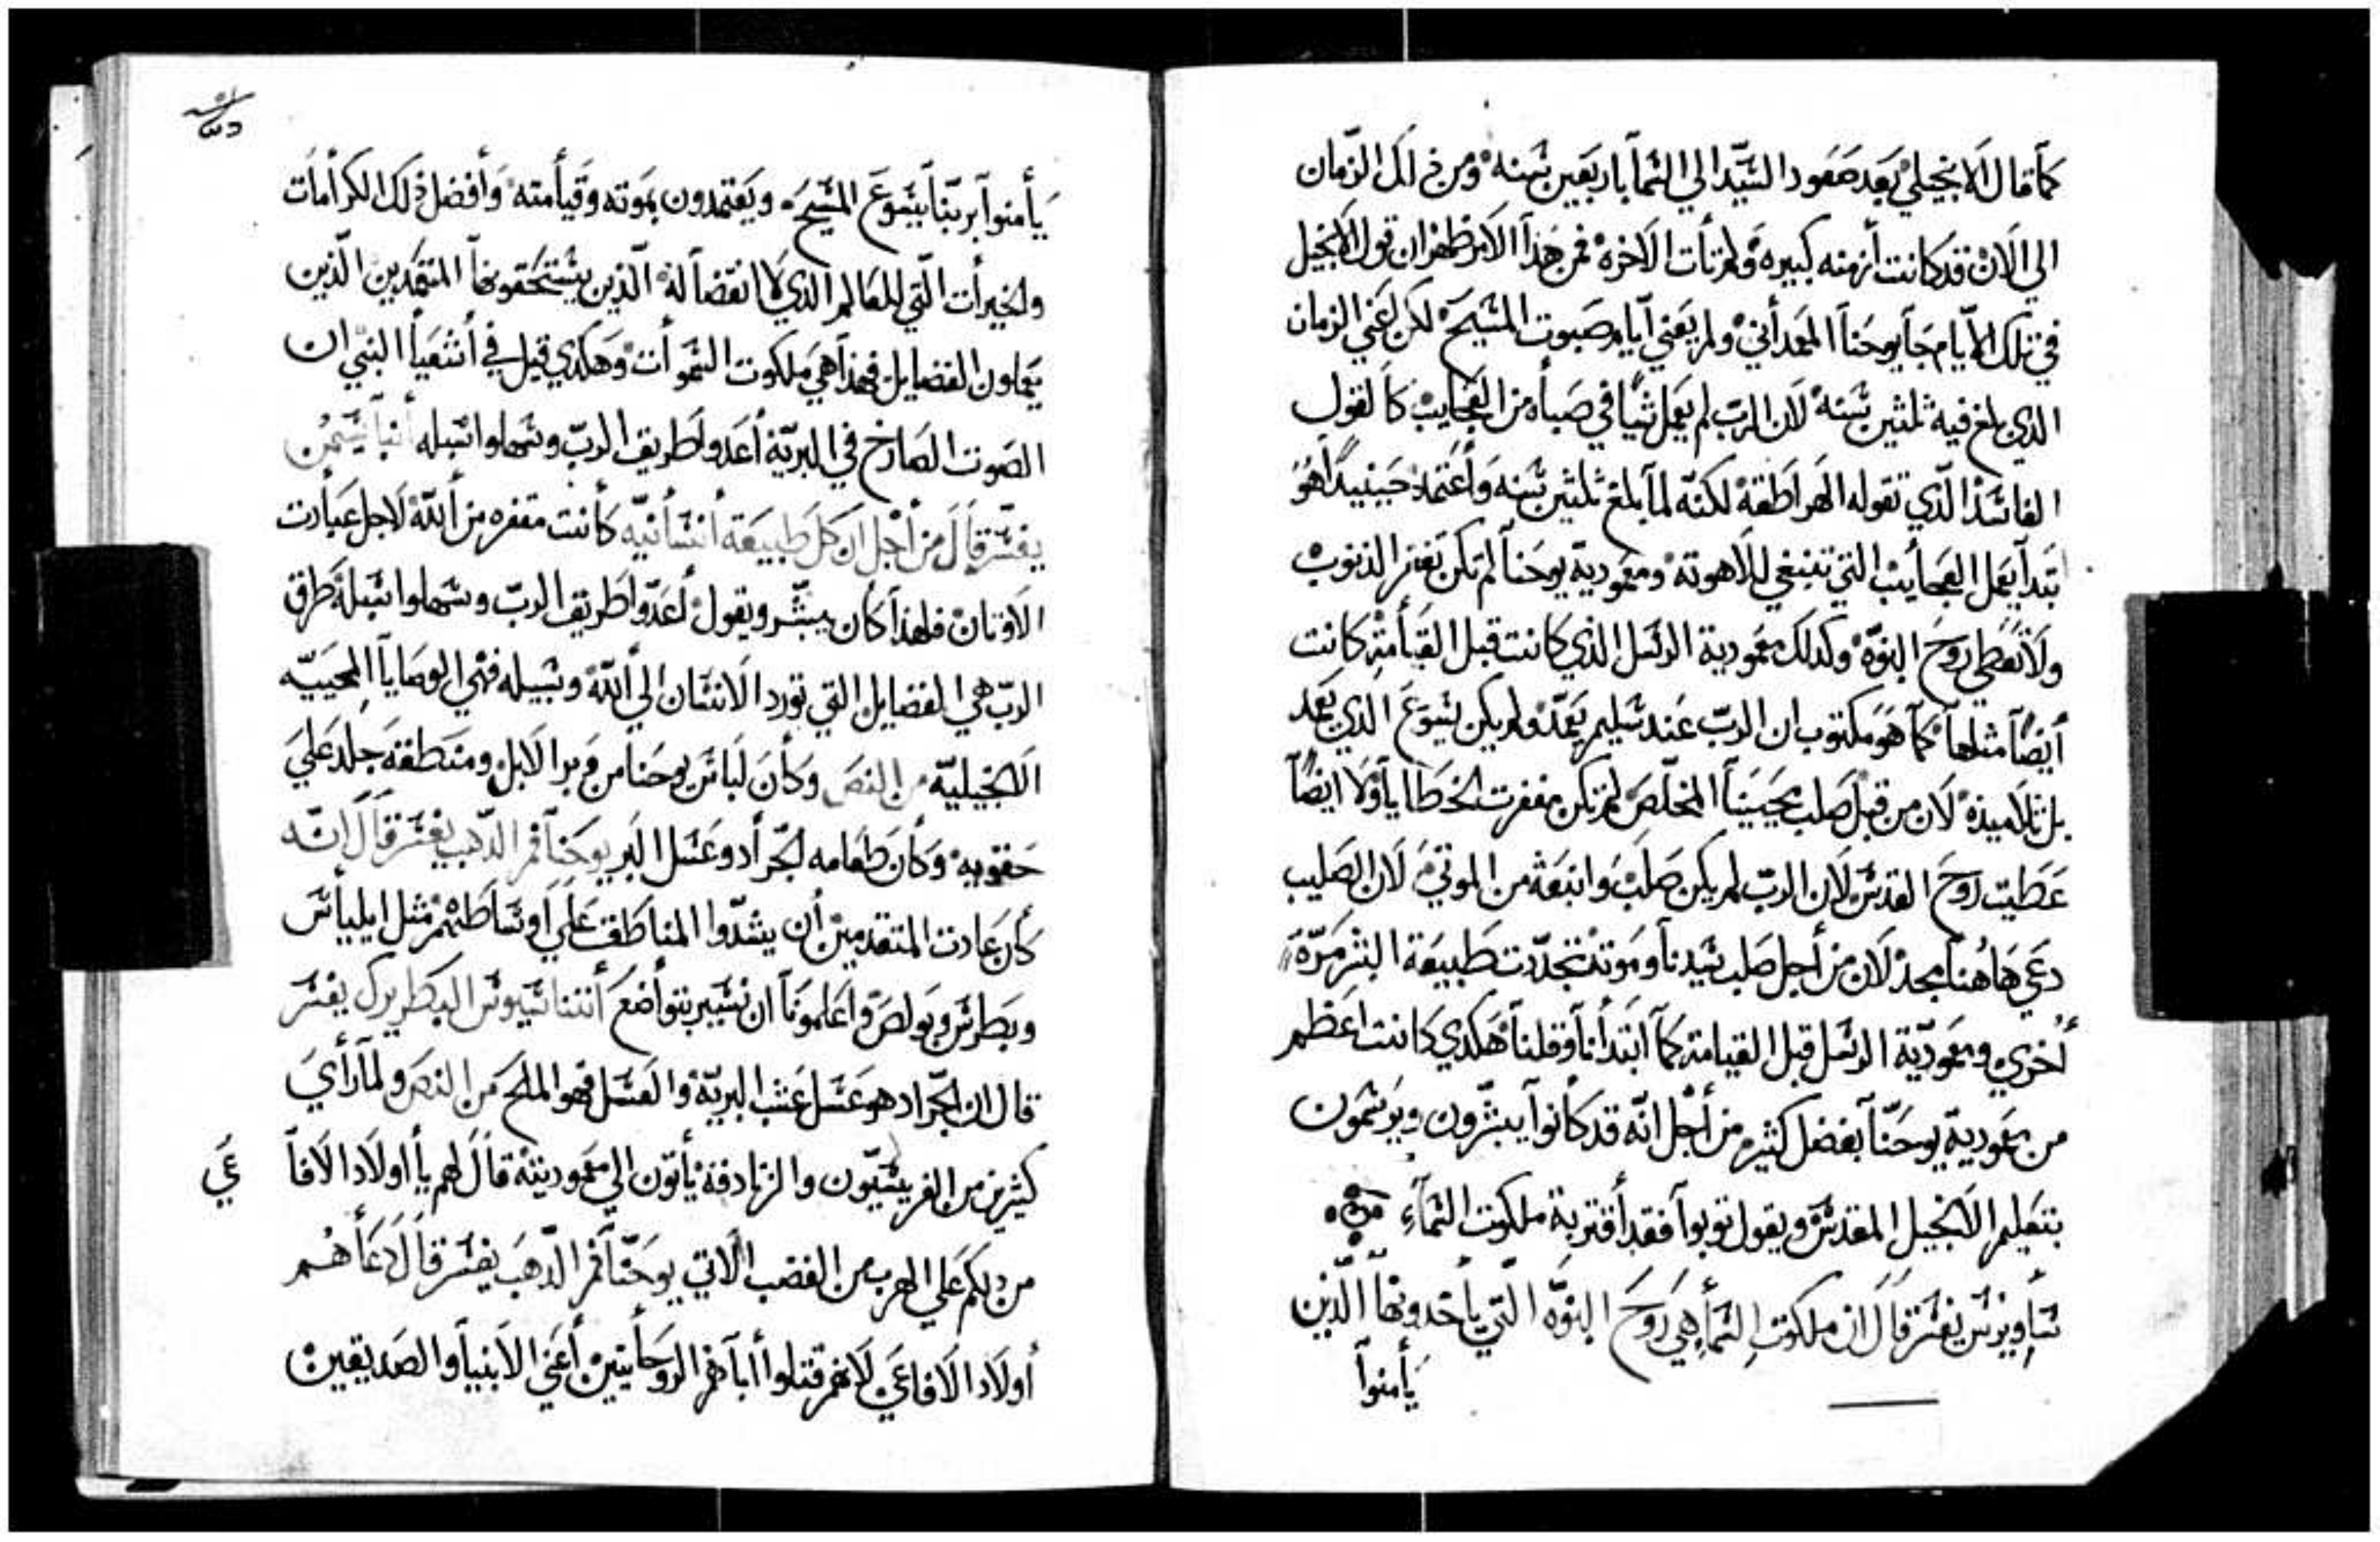 كما قال الانجيلي بعد صعود السيد الي السما باربعين سنه ومن ذالك الزمان
الي الان قد كانت أزمنه كبيره ولم تأت الاخره فمن هذا الامر ظهر ان قول الانجيل
في تلك الايام جا يوحنا المعمداني ولم يعني ايام صبوت المسيح لكن اعني الزمان
الذي بلغ فيه ثلثين سنه لان الرب لم يعمل شيا في صباه من العجايب كالقول
الفاسد الذي تقوله الهراطقة لكنه لما بلغ ثلثين سنه وأعتمد حينيدا هو
ابتدا يعمل العجايب التي تنبغي للاهوته ومعمودية يوحنا لم تكن تغفر الذنوب
ولا تعطي روح البنوه وكدلك معمودية الرسل الذي كانت قبل القيامة كانت
أيضا مثلها كما هو مكتوب ان الرب عند سليم يعمد ولم يكن يسوع الذي يعمد
بل تلاميذه لان من قبل صلب محيينا المخلص لم تكن مغفرت الخطايا ولا ايضا
عطيت روح القدس لان الرب لم يكن صلب وانبعث من الموتي لان الصليب
دعي هاهنا مجد لان من أجل صلب سيدنا وموته تجددت طبيعة البشر مرة
أخري ومعمودية الرسل قبل القيامة كما ابتدأنا وقلنا هكدي كانت اعظم
من معمودية يوحنا بفضل كثير من أجل انه قد كانوا يبشرون ويوسمون
بتعليم الانجيل المقدس ويقول توبوا فقد أقتربة ملكوت السماء
ساويرس يفسر قال ان ملكوت السما هي روح البنوه التي يأخدونها الذين
يأمنوا
يأمنوا بربنا يسوع المسيح ويعتمدون بموته وقيأمته وأفضل ذلك الكرأمات
والخيرأت التي للعالم الذي لا انقضا له الذين يستحقونها المتعمدين الذين
يعملون الفضايل فهذا هي ملكوت السموأت وهكدي قيل في أشعيا النبي ان
الصوت الصارخ في البرية أعدو لطريق الرب وسهلوا سبله أنبا سمعن
يفسر قال من أجل ان كل طبيعة أنسأنيه كأنت مقفره من ألله لاجل عبأدت
الاوتان فلهذا كان يبشر ويقول أعدوا طريق الرب وسهلوا سبله طرق
الرب هي الفضايل التي تورد الانسان الي ألله وسبيله فهي الوصايا المحييه
الانجيلية من النص وكأن لباس يوحنا من وبر الابل ومنطقة جلد علي
حقويه وكأن طعامه الجرأد وعسل البر يوحنا فم الدهب يفسر قال انه
كأن عادت المتقدمين أن يشدوا المناطق علي اوساطهم مثل ايليأس
وبطرس وبولص واعلمونا ان نسير بتواضع أتناسيوس البطريرك يفسر
قال ان الجراد هو عسل عشب البرية والعسل فهو الملح من النص ولما رأي
كثيرين من الفريسيون والزنادقة يأتون الي معموديته قال لهم يأ اولاد الافا
عي
من دلكم علي الهرب من الغضب الاتي يوحنا فم الدهب يفسر قال دعأهم
أولاد الافاعي لانهم قتلوا أبأهم الروحأنيين أعني الانبيا والصديقين